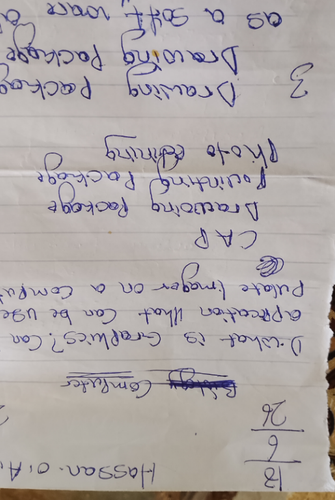 Hassan. O. A.
13
6
26
Computer
D. What is Graphics? Can
apptcation what can be use
pulate Images on a Compu
CAP
Drawing Package
Painting Package
Photo Editing
3 Drawing Package
Drawing Package
as a software